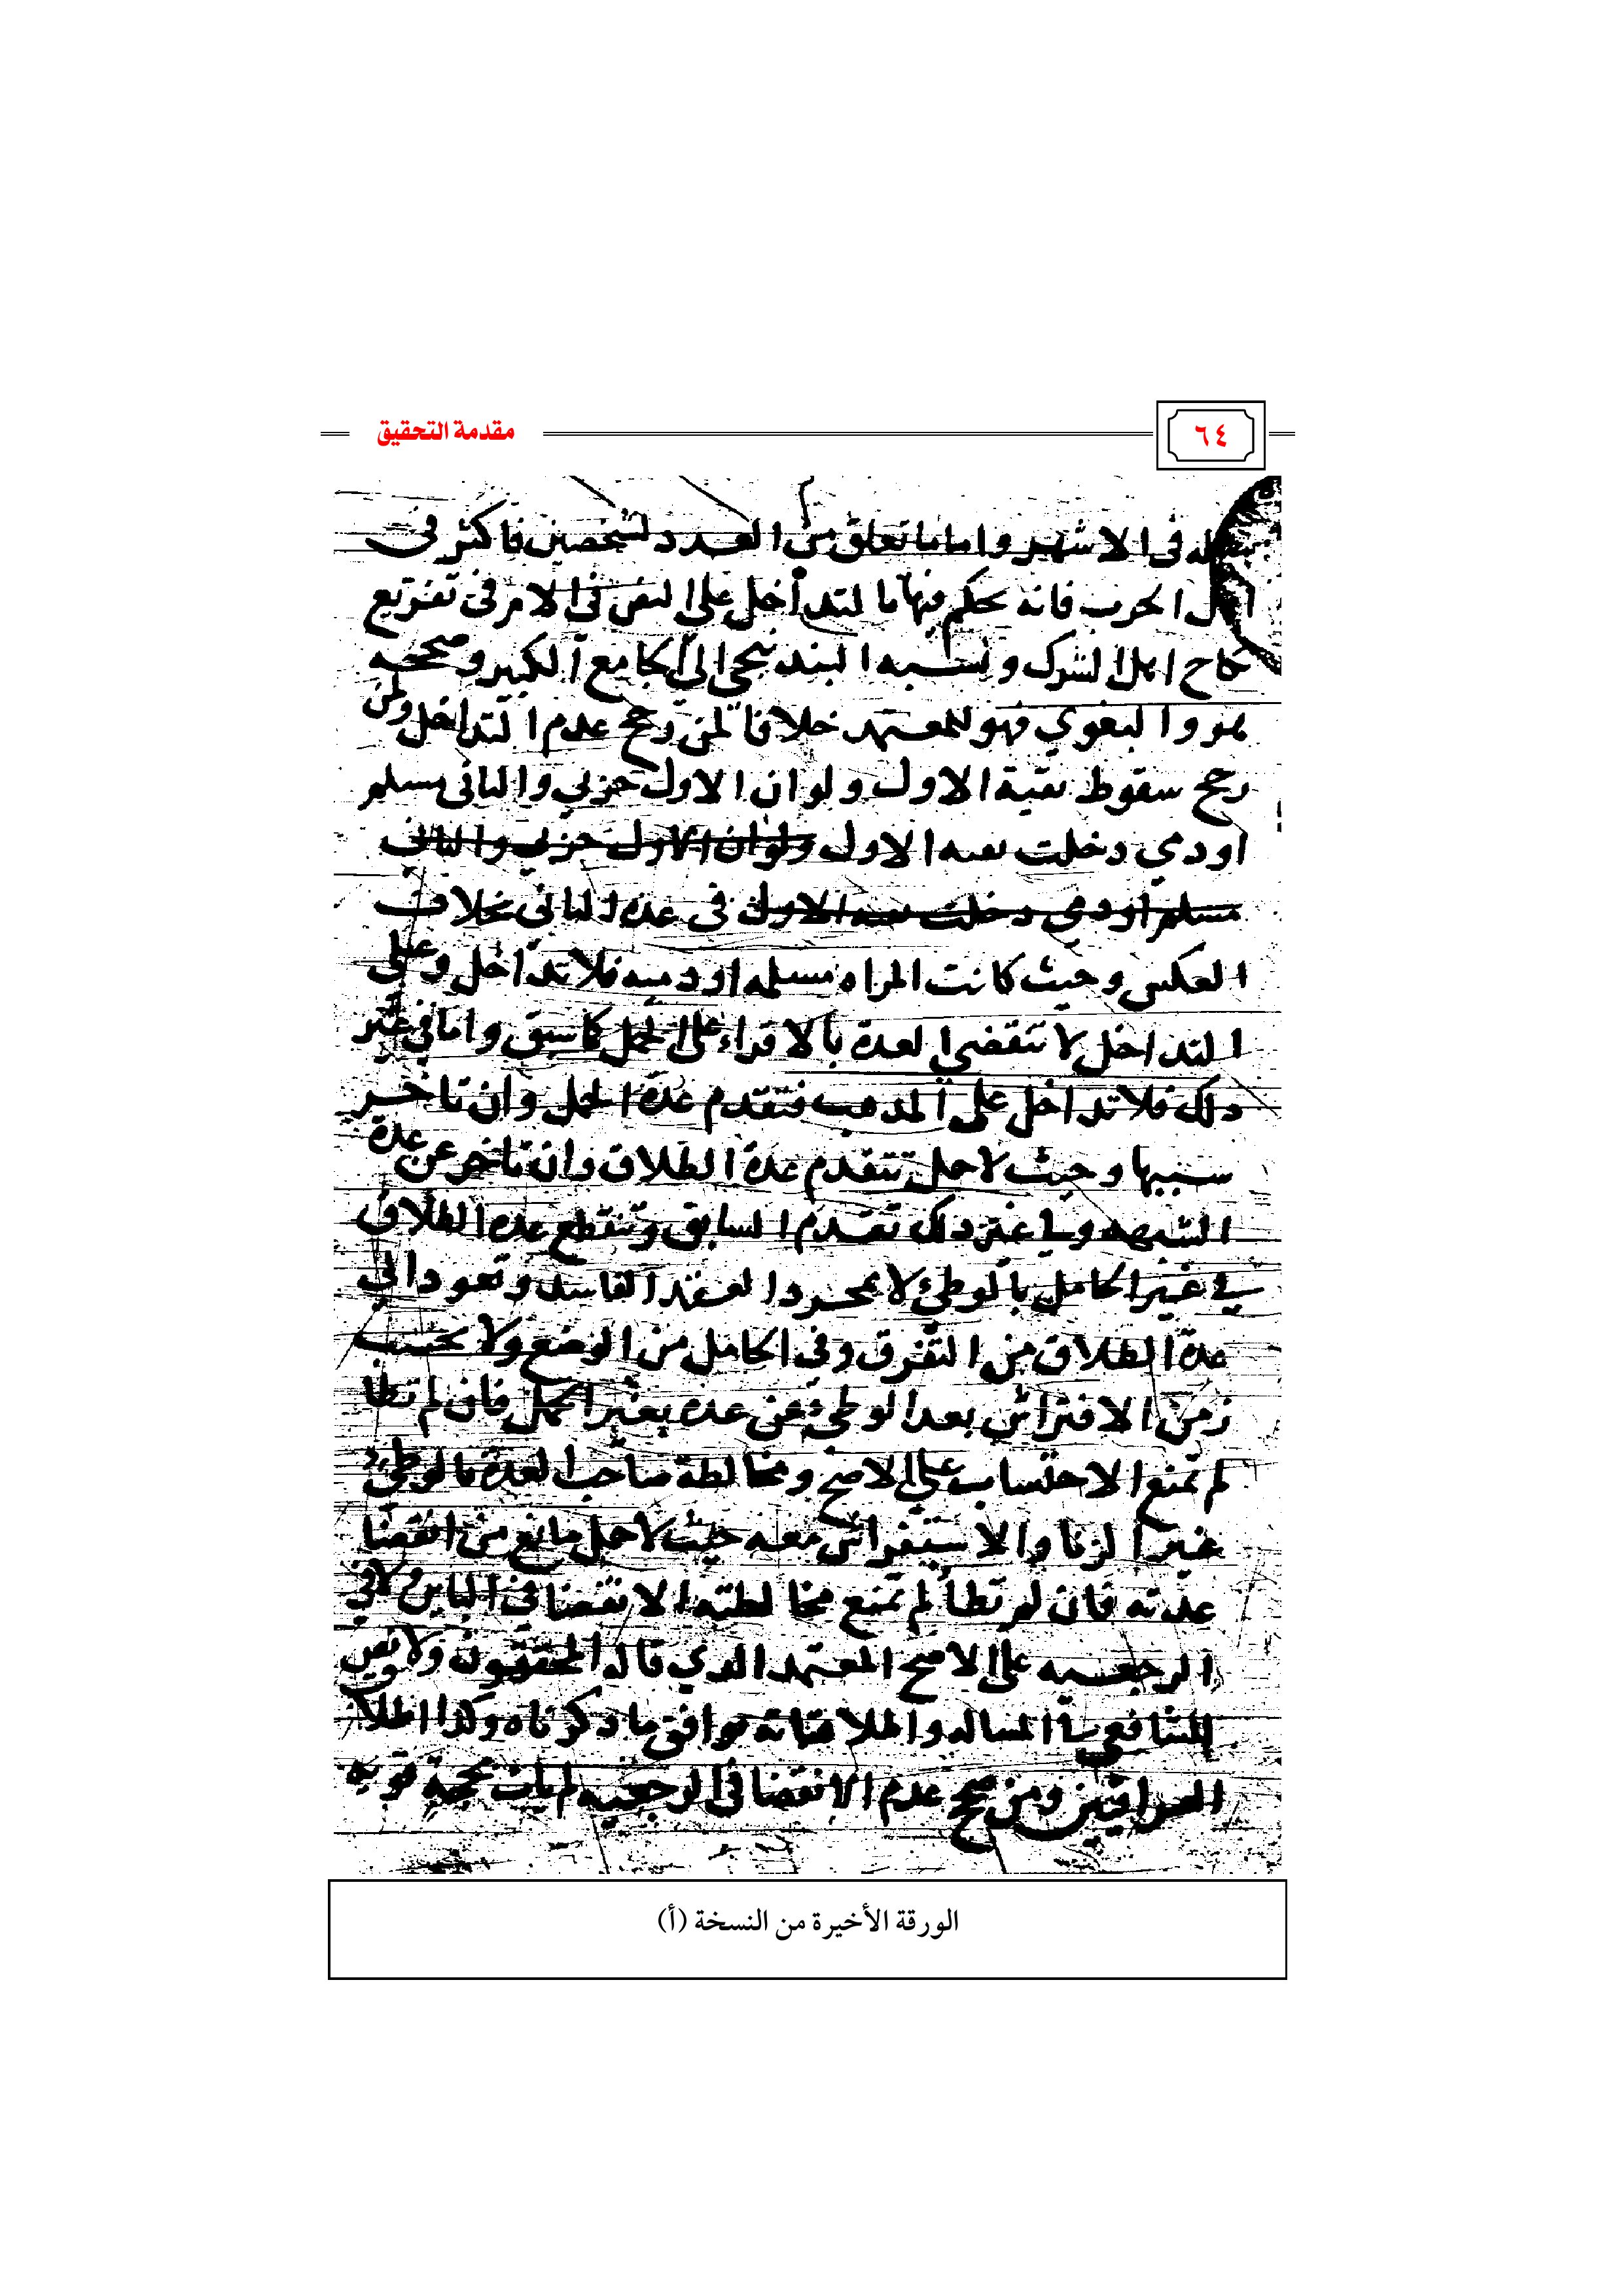 ٦٤
مقدمة التحقيق
في الاشهر واما ما تعلق من العدد لشخصين فاكثر في
الحرب فانه يحكم فيها با لتداخل على النص في الامر في تفريع
اهل الشرك ونسبه البندنيجي الى الجامع الكبير وصححه
هو والبغوي فهو المعتمد خلافا لمن رجح عدم التداخل ولمن
رجح سقوط بقية الاول ولو ان الاول حربي والثاني مسلم
او ذمي دخلت بقيه الاول ولو ان الاول حربي والثاني
مسلم او ذمي دخلت بقيه الاول في عدة الثاني بخلاف
العكس وحيث كانت المراه مسلمه او ذميه فلا تداخل وعلى
التداخل لا تنقضي العدة بالاقراء على الحمل كما سبق واما في غير
ذلك فلا تداخل على المذهب فتقدم عدة الحمل وان تاخر
سببها وحيث لا حمل تتقدم عدة الطلاق وان تاخر عن عدة
الشبهه وفي غير ذلك تقدم السابق وتنقطع عدة الطلاق
في غير الحامل بالوطئ لا بمجرد العقد الفاسد وتعود الى
عدة الطلاق من التفرق وفي الحامل من الوضع ولا يحسب
زمن الافتراش بعد الوطئ عن عدة بغير الحمل فان لم تطا
لم تمنع الاحتساب على الاصح ومخالطة صاحب العدة بالوطئ
غير الزنا والاستفراش معه حيث لا حمل مانع من انقضا
عدته فان لم تطأ لم تمنع مخالطته الانقضا في الباين ولا في
الرجعيه على الاصح المعتمد الذي قاله المحققون
للشافعي في المساله واطلاقاته توافق ما ذكرناه وكذا اطلاق
العراقيين ومن صحح عدم الانقضا في الرجعيه لم يات بحجة قويه
الورقة الأخيرة من النسخة (أ)